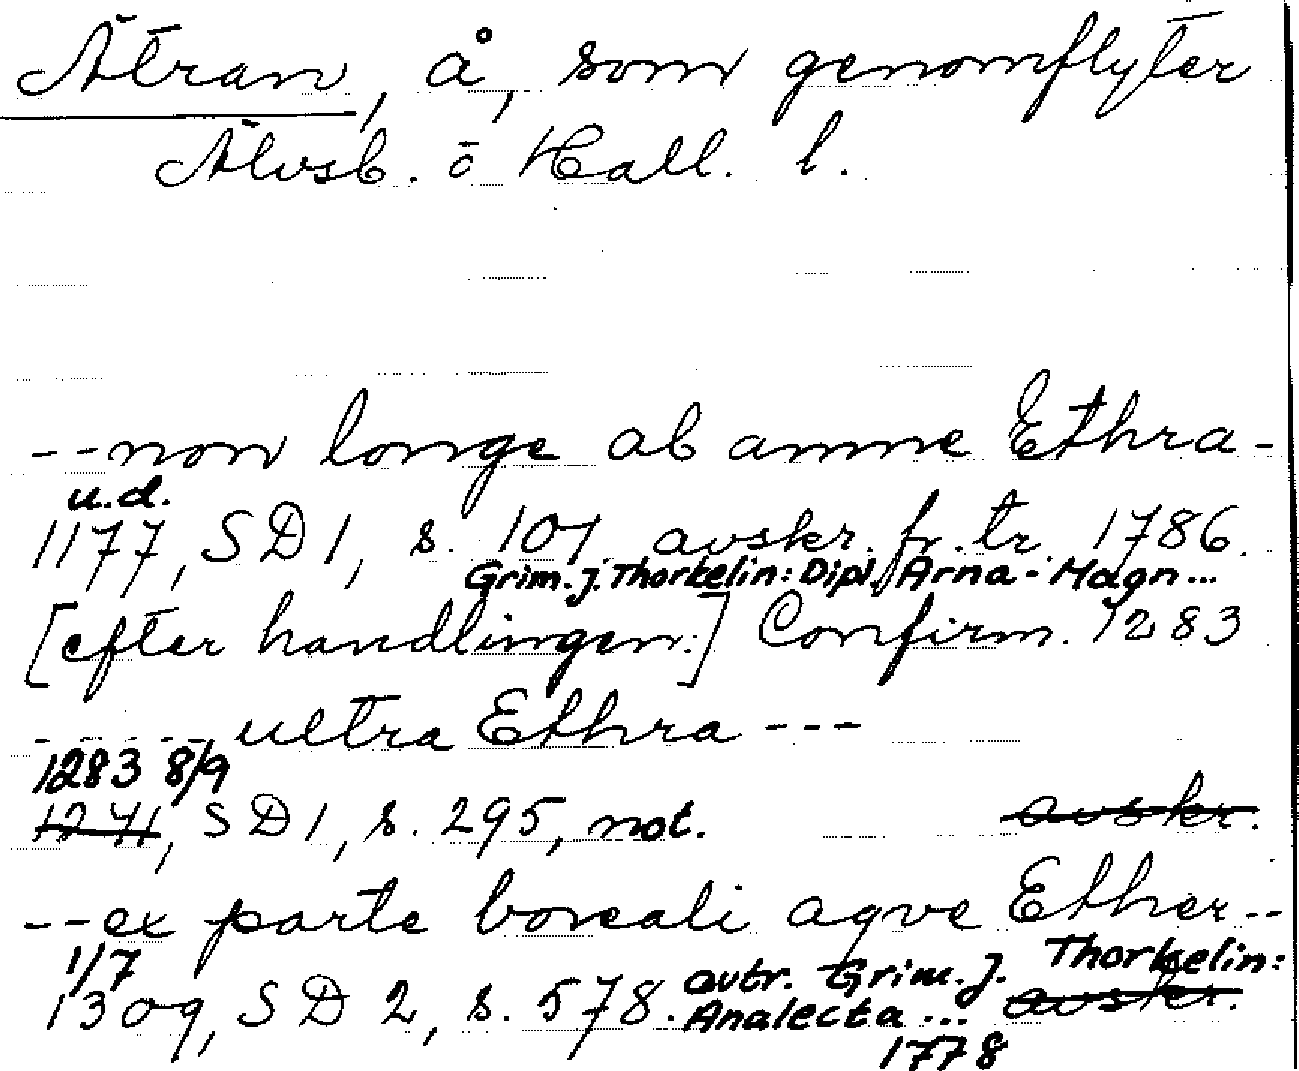 Ätran, å, som genomflyter
Älvsb. o Hall. l.
--non longe ab amne Ethra-
u.d.
1177, SD 1, s. 107 avskr. fr. tr. 1786.
Grim. J. Thorkelin: Dipl. Arna-Magn...
[efter handlingen:] Confirm. 1283
----- ultra Ethra ---
1283 8/9
1271, SD 1, s. 295, not. avskr.
--ex parte boreali aqve Ether--
1/7 avtr. Grim. J. Thorkelin:
1309, SD 2, s. 578. Analecta ... avskr.
1778